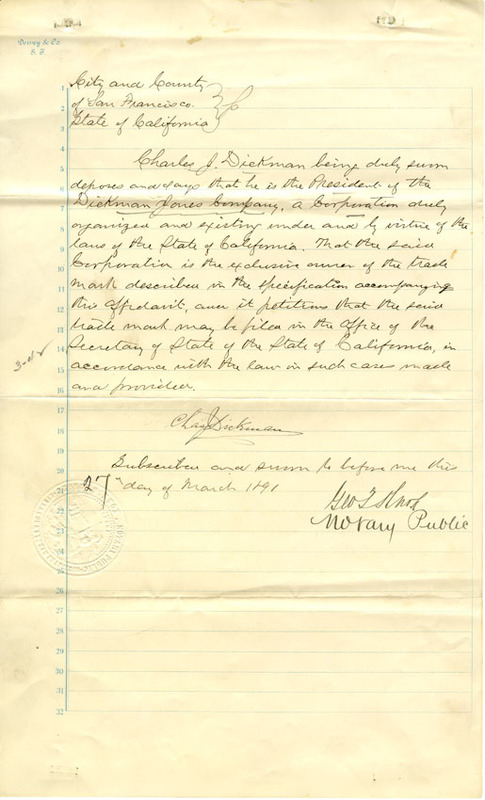 Dewey & Co.
S. F.
City and County
of San Francisco.
State of California
Charles J. Dickman being duly sworn
deposes and says that he is the President of the
Dickman Jones Company, a Corporation duly
organized and existing under and by virtue of the
laws of the State of California. That the said
Corporation is the exclusive owner of the trade
mark described in the specification accompanying
this affidavit, and it petitions that the said
trade mark may be filed in the Office of the
Secretary of State of the State of California, in
accordance with the law in such cases made
and provided.
Chas J Dickman
Subscribed and sworn to before me this
27th day of March 1891
Geo T Knox
Notary Public
1
2
3
4
5
6
7
8
9
10
11
12
13
14
15
16
17
18
19
20
21
22
23
24
25
26
27
28
29
30
31
32